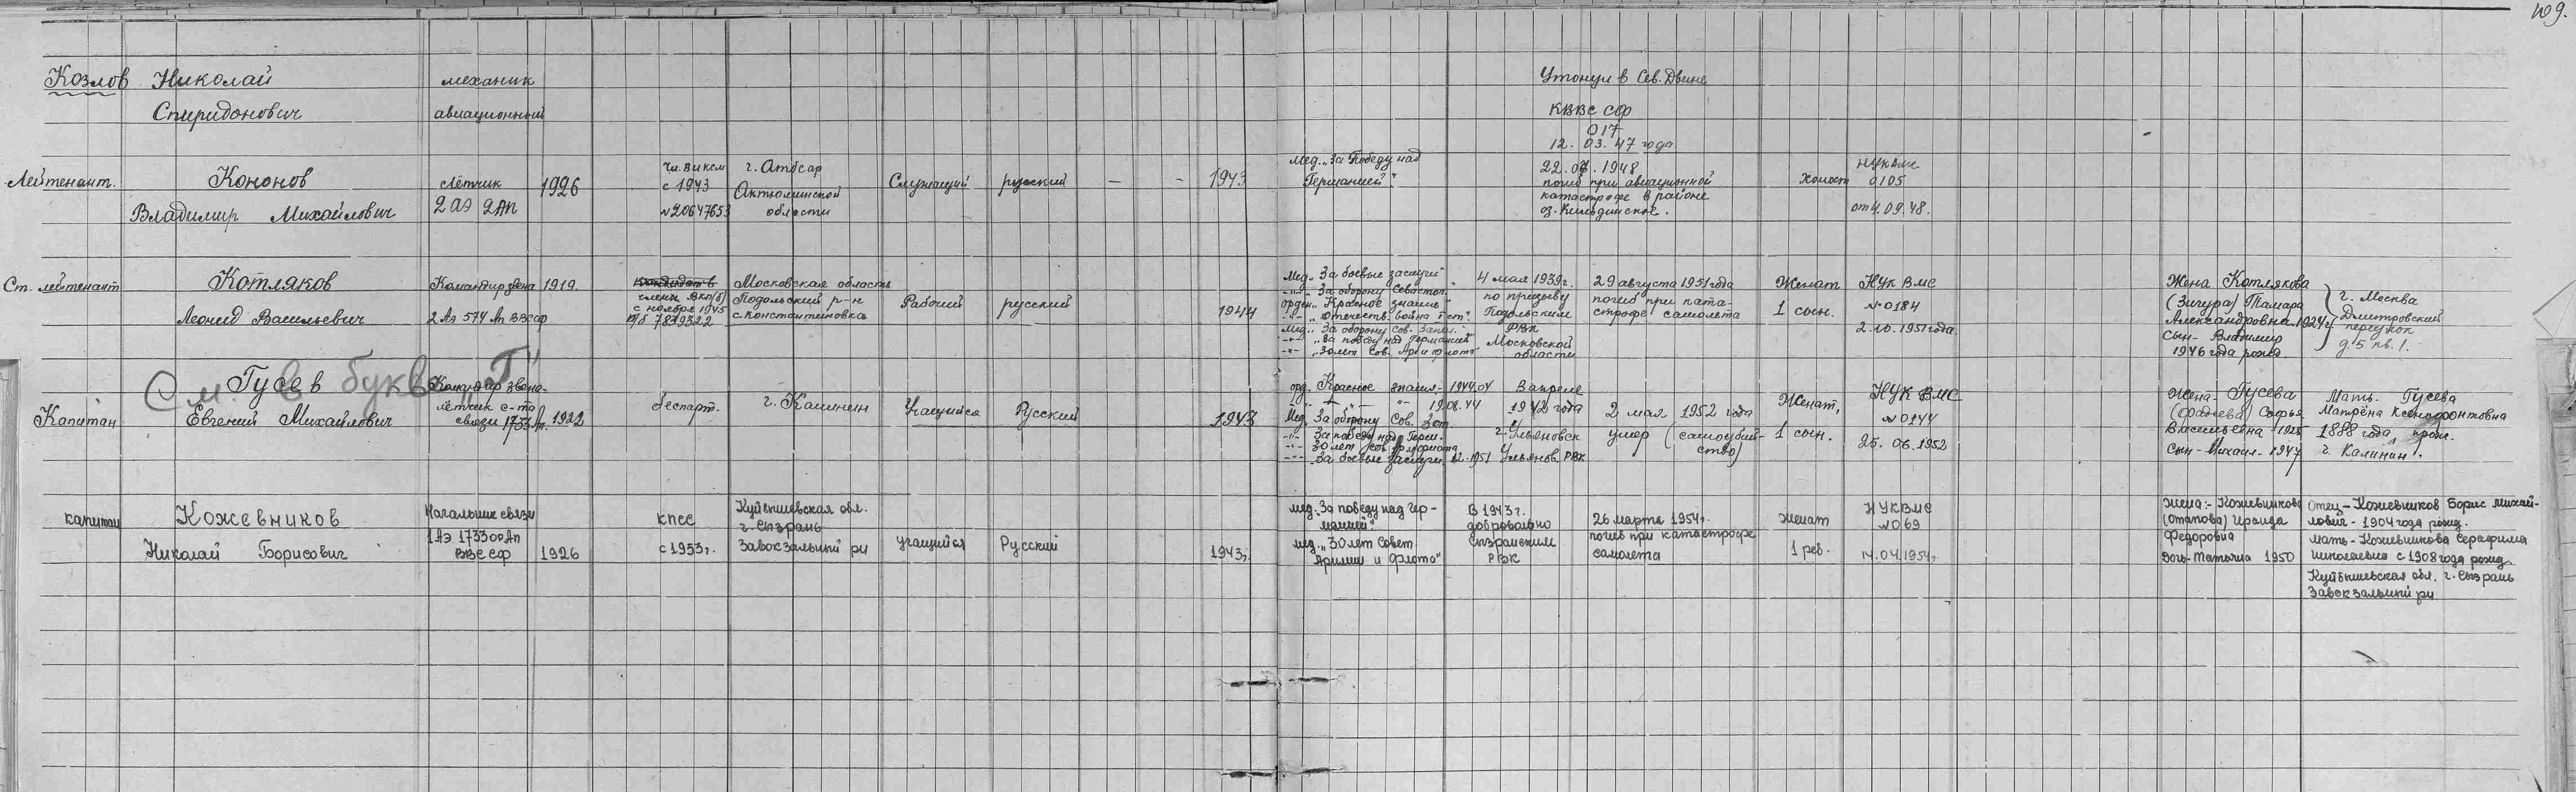 109.
Козлов Николай
Спиридонович
механик
авиационный
Утонул в Сев. Двине
КВВС СФ
017
12. 03. 47 года
Лейтенант.
Кононов
Владимир Михайлович
лётчик
2 АЭ 2 АП
1926
чл. ВЛКСМ
с 1943
№20647653
г. Атбсар
Актюлинской
области
Служащий
русский
— -
1943
Мед. „За Победу над
Германией".
22. 08. 1948
погиб при авиационной
катастрофе в районе
оз. Кильдинское.
Холост
НУКВМС
0105
от 4. 09. 48.
Ст. лейтенант
Котляков
Леонид Васильевич
Командир звена
2 Аэ 574 Ап ВВСсф
1919.
Кандидат в
члены ВКП(б)
с ноября 1945
п/б 7839322
Московская область
Подольский р-н
с. Константиновка
Рабочий
русский
1944
Мед. „За боевые заслуги"
-"- „За оборону Севастоп."
орден „Красное знамя"
-"- „Отечеств. война I ст."
Мед. „За оборону Сов. Запол."
-"- „За победу над Германией"
-"- „30 лет Сов. Арм и флота"
4 мая 1939г.
по призыву
Подольским
РВК
Московской
области
29 августа 1951 года
погиб при ката-
строфе самолета
Женат
1 сын.
НУК ВМС
№ 0184
2. 10. 1951 года.
Жена Котлякова
(Зигура) Тамара
Александровна 1924 г.
Сын- Владимир
1946 года рожд.
г. Москва
Дмитровский
переулок
д. 5 кв. 1.
См. в букве „Г"
Капитан
Гусев
Евгений Михайлович
Командир звена-
лётчик с-та
связи 1733 Ап.
1922
беспарт.
г. Калинин
Учащийся
Русский
1943
орд. Красное знамя- 1944. 04
-"- -"- 19. 08. 44
Мед. За оборону Сов. Зап.
-"- За победу над Герм.
-"- 30 лет Сов. Арм. и флота
-"- За боевые заслуги. 12. 1951
В апреле
1942 года
г. Ульяновск
Ульянов. РВК
2 мая 1952 года
умер (самоубий-
ство)
Женат,
1 сын.
НУК ВМС
№ 0144
25. 06. 1952
Жена- Гусева
(Фадеева) Софья
Васильевна- 1925
Сын- Михаил- 1947
Мать. Гусева
Матрёна Ксенофонтовна
1888 года, прож.
г. Калинин.
капитан
Кожевников
Николай Борисович
Начальник связи
1 Аэ 1733 ОАП
ВВС СФ
1926
кпсс
с 1953г.
Куйбышевская обл.
г. Сызрань
Завокзальный рн
учащийся
Русский
1943г.
мед. „За победу над Гер-
манией"
мед. „30 лет Совет.
Армии и Флота"
В 1943 г.
добровольно
Сызранским
РВК
26 марта 1954г.
погиб при катастрофе
самолета
женат
1 реб.
НУКВМС
№ 069
14. 04. 1954г.
жена:- Кожевникова
(Отапова) Ираида
Федоровна
дочь-Татьяна 1950
Отец- Кожевников Борис Михай-
лович- 1904 года рожд.
мать- Кожевникова Серафима
Николаевна с 1908 года рожд.
Куйбышевская обл. г. Сызрань
Завокзальный рн